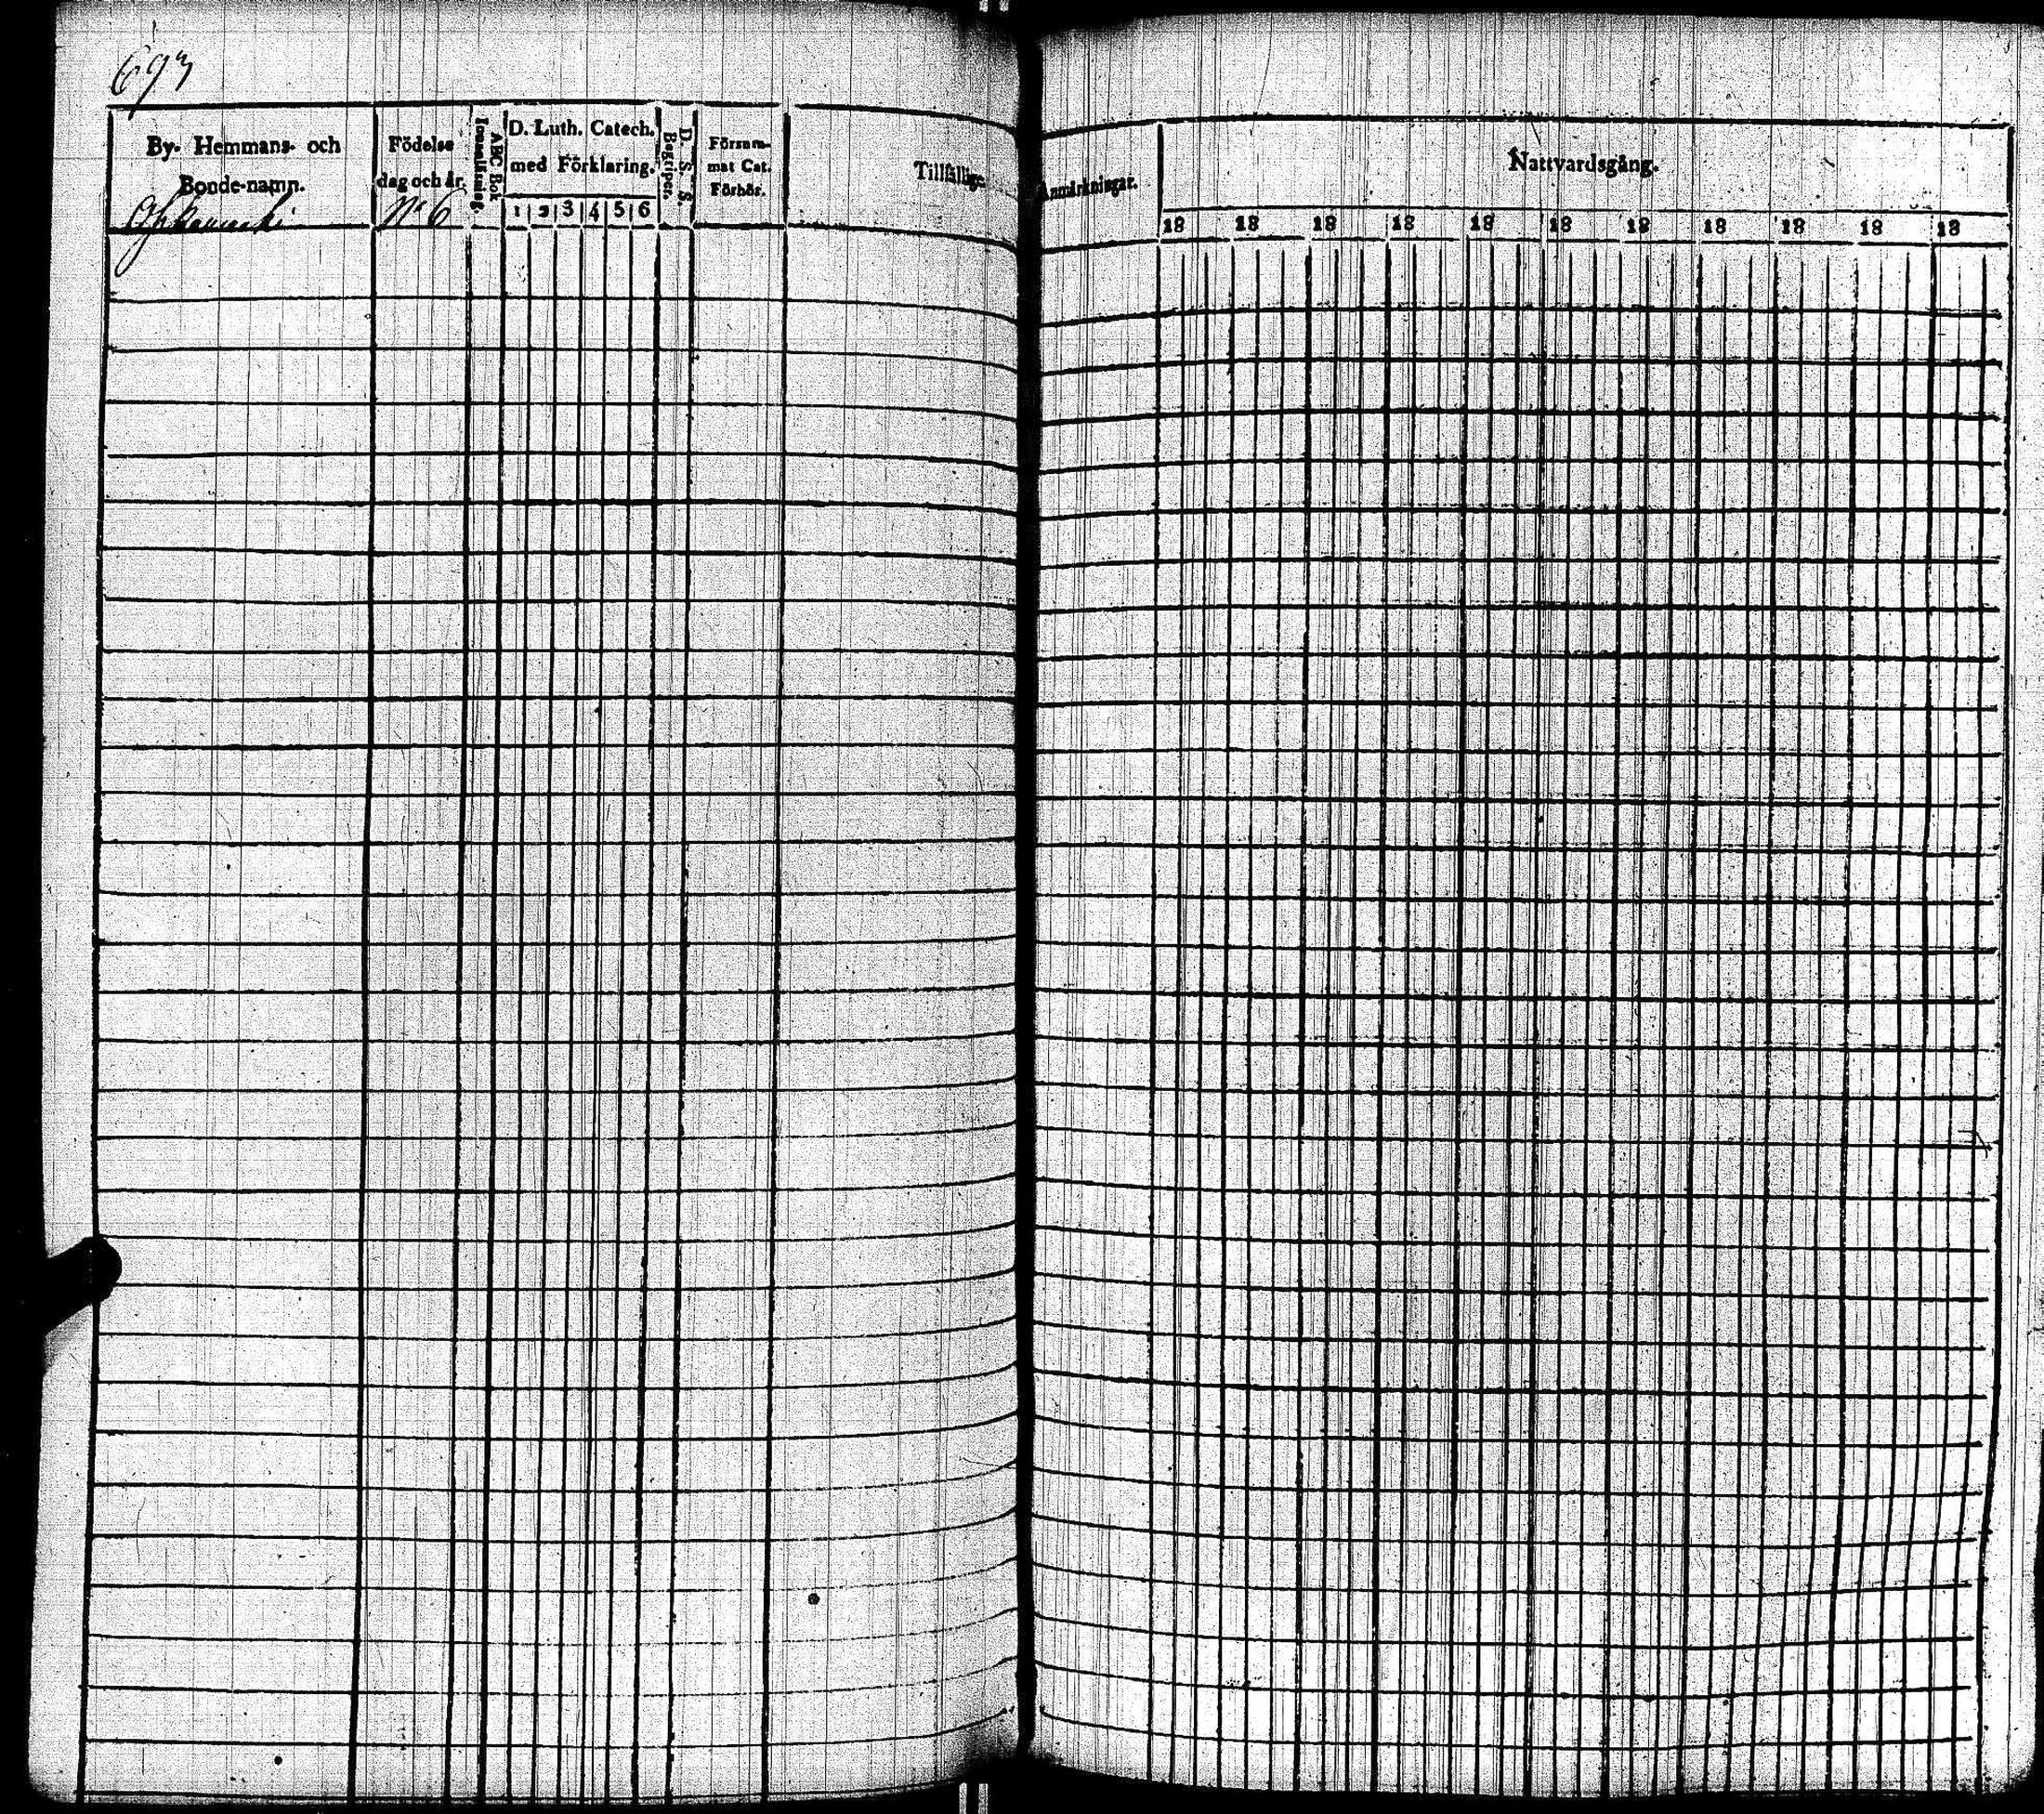 693
By- Hemmans- och
Bonde-namn.
No 6
Födelse
dag och år.
Innanläsning.
ABC Bok
D. Luth. Catech.
med Förklaring.
1 2 3 4 5 6
Begriper.
D. S. S.
Försum-
mat Cat.
Förhör.
Tillfällige
Anmärkningar.
Nattvardsgång.
18 18 18 18 18 18 18 18 18 18 18